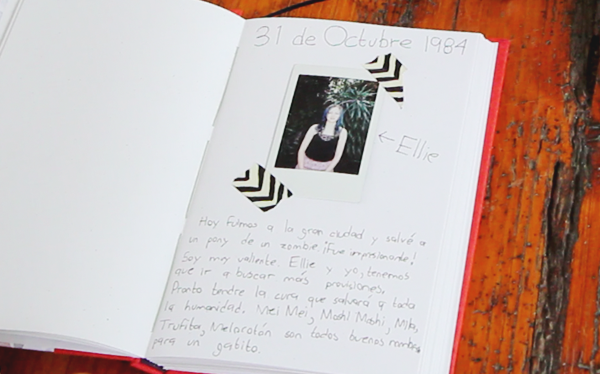 31 de Octubre 1984
← Ellie
Hoy fuimos a la gran ciudad y salvé a
un pony de un zombie. ¡Fue impresionante!
Soy muy valiente. Ellie y yo, tenemos
que ir a buscar más provisiones.
Pronto tendré la cura que salvará a toda
la humanidad. Mei Mei, Moshi Moshi, Mila,
Trufita, Melocotón son todos buenos nombres
para un gatito.